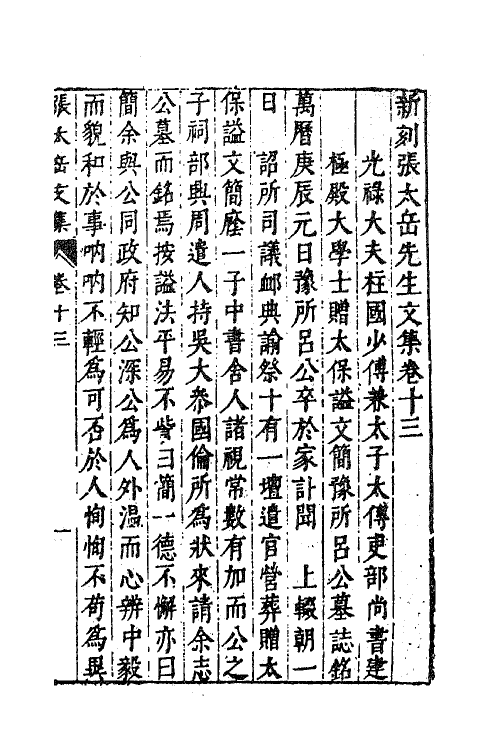 新刻張太岳先生文集卷十三
光祿大夫柱國少傅兼太子太傅吏部尚書建
極殿大學士贈太保謚文簡豫所呂公墓誌銘
萬曆庚辰元日豫所呂公卒於家訃聞　上輟朝一
日　詔所司議䘏典諭祭十有一壇遣官營葬贈太
保謚文簡廕一子中書舍人諸視常數有加而公之
子祠部興周遣人持吳大叅國倫所為狀來請余志
公墓而銘焉按謚法平易不訾曰簡一德不懈亦曰
簡余與公同政府知公深公為人外溫而心辨中毅
而貌和於事吶吶不輕為可否於人恂恂不苟為異
張太岳文集　卷十三　一